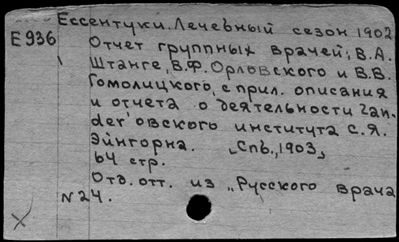 Ессентуки. Лечебный сезон 1902
E936
Отчет группных врачей, В.А.
Штанге, В.Ф. Орловского и В.В.
Гомолицкого, с прил. описания
и отчета о деятельности Zan-
der'овского института С.Я.
Эйнгорна. „Спб., 1903„
64 стр.
Отд. отт. из „Русского врача
N24.